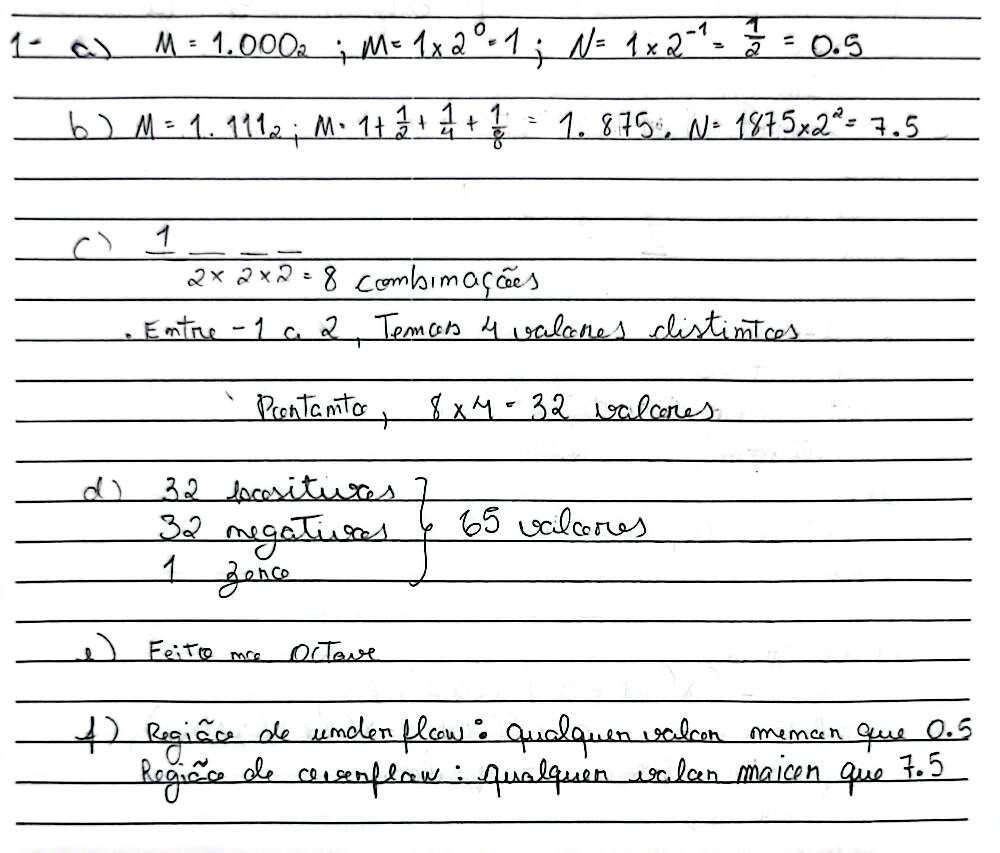 1- a) M = 1.000₂ ; M= 1 x 2⁰ = 1 ; N= 1 x 2⁻¹ = 1/2 = 0.5
b) M = 1. 111₂ ; M = 1 + 1/2 + 1/4 + 1/8 = 1. 875. N= 1875 x 2² = 7.5
c) 1 _ _ _
2 x 2 x 2 = 8 combinações
. Entre -1 a 2, Temos 4 valores distintos
Portanto, 8 x 4 = 32 valores
d) 32 positivos
32 negativos } 65 valores
1 zero
e) Feito no Octave
f) Região de underflow : qualquer valor menor que 0.5
Região de overflow : qualquer valor maior que 7.5